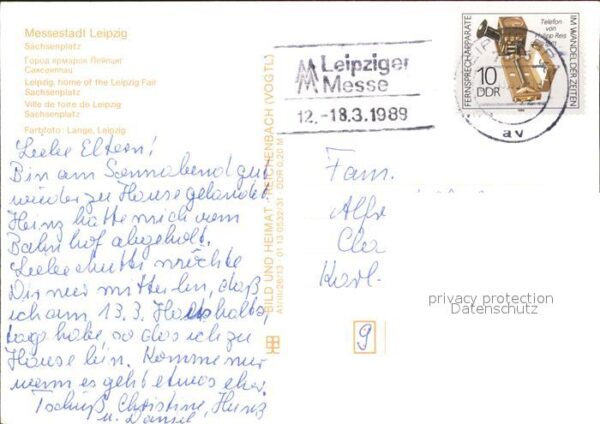 Messestadt Leipzig
Sachsenplatz
Город ярмарок Лейпциг
Саксенплац
Leipzig, home of the Leipzig Fair
Sachsenplatz
Ville de foire de Leipzig
Sachsenplatz
Farbfoto: Lange, Leipzig
Liebe Eltern!
Bin am Sonnabend gut
wieder zu Hause gelandet.
Heinz hatte mich vom
Bahnhof abgeholt.
Liebe Mutti möchte
Dir nur mitteilen, daß
ich am 13.3. Haushalts-
tag habe, so das ich zu
Hause bin. Komme nur
wenn es geht etwas eher.
Tschüß, Christine, Heinz
u. Daniel
BILD UND HEIMAT REICHENBACH (VOGTL)
A1/III/26/13 01 13 0532/31 DDR 0,20 M
Leipziger
Messe
12.-18.3.1989
av
FERNSPRECHAPPARATE
IM WANDEL DER ZEITEN
Telefon
von
Philipp Reis
10
DDR
Fam.
Alfr
Cla
Karl-
privacy protection
Datenschutz
9